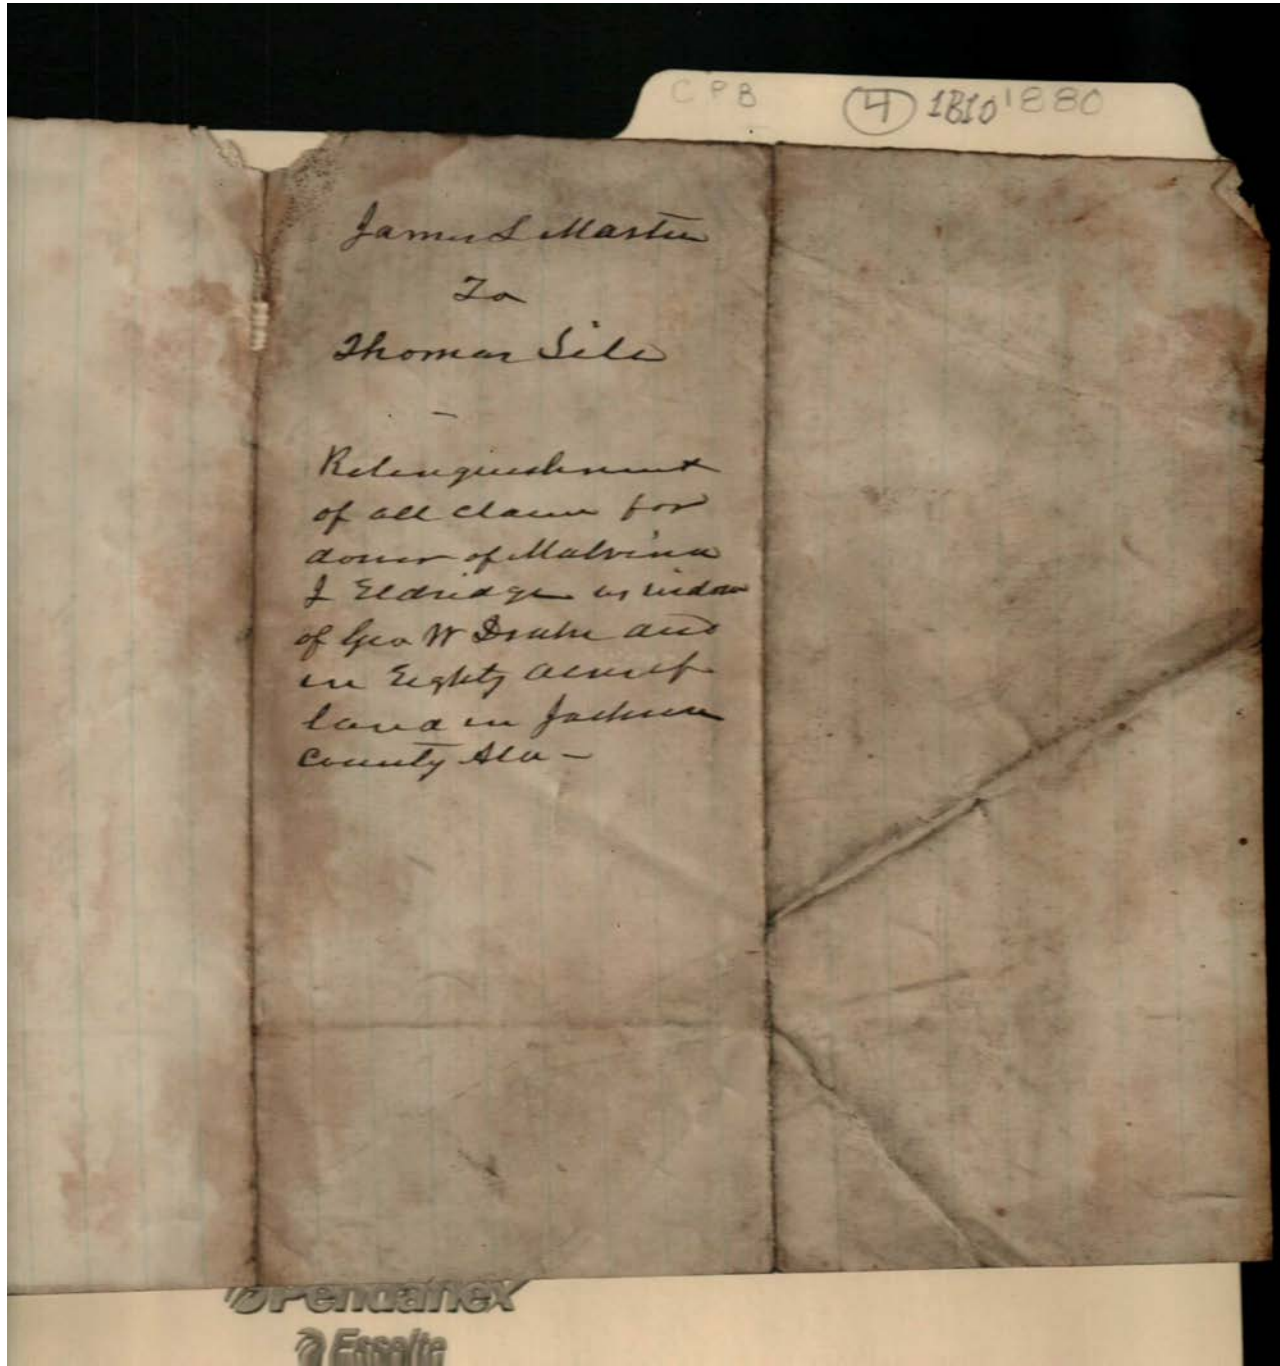 CPB 4 1B10 1880
James L Martin
To
Thomas
Relinquishment
of all claim for
dower of Malvina
J Eldridge as widow
of Geo W Drake
in Eighty acres of
land in Jackson
County Ala —
Pendaflex
Esselte